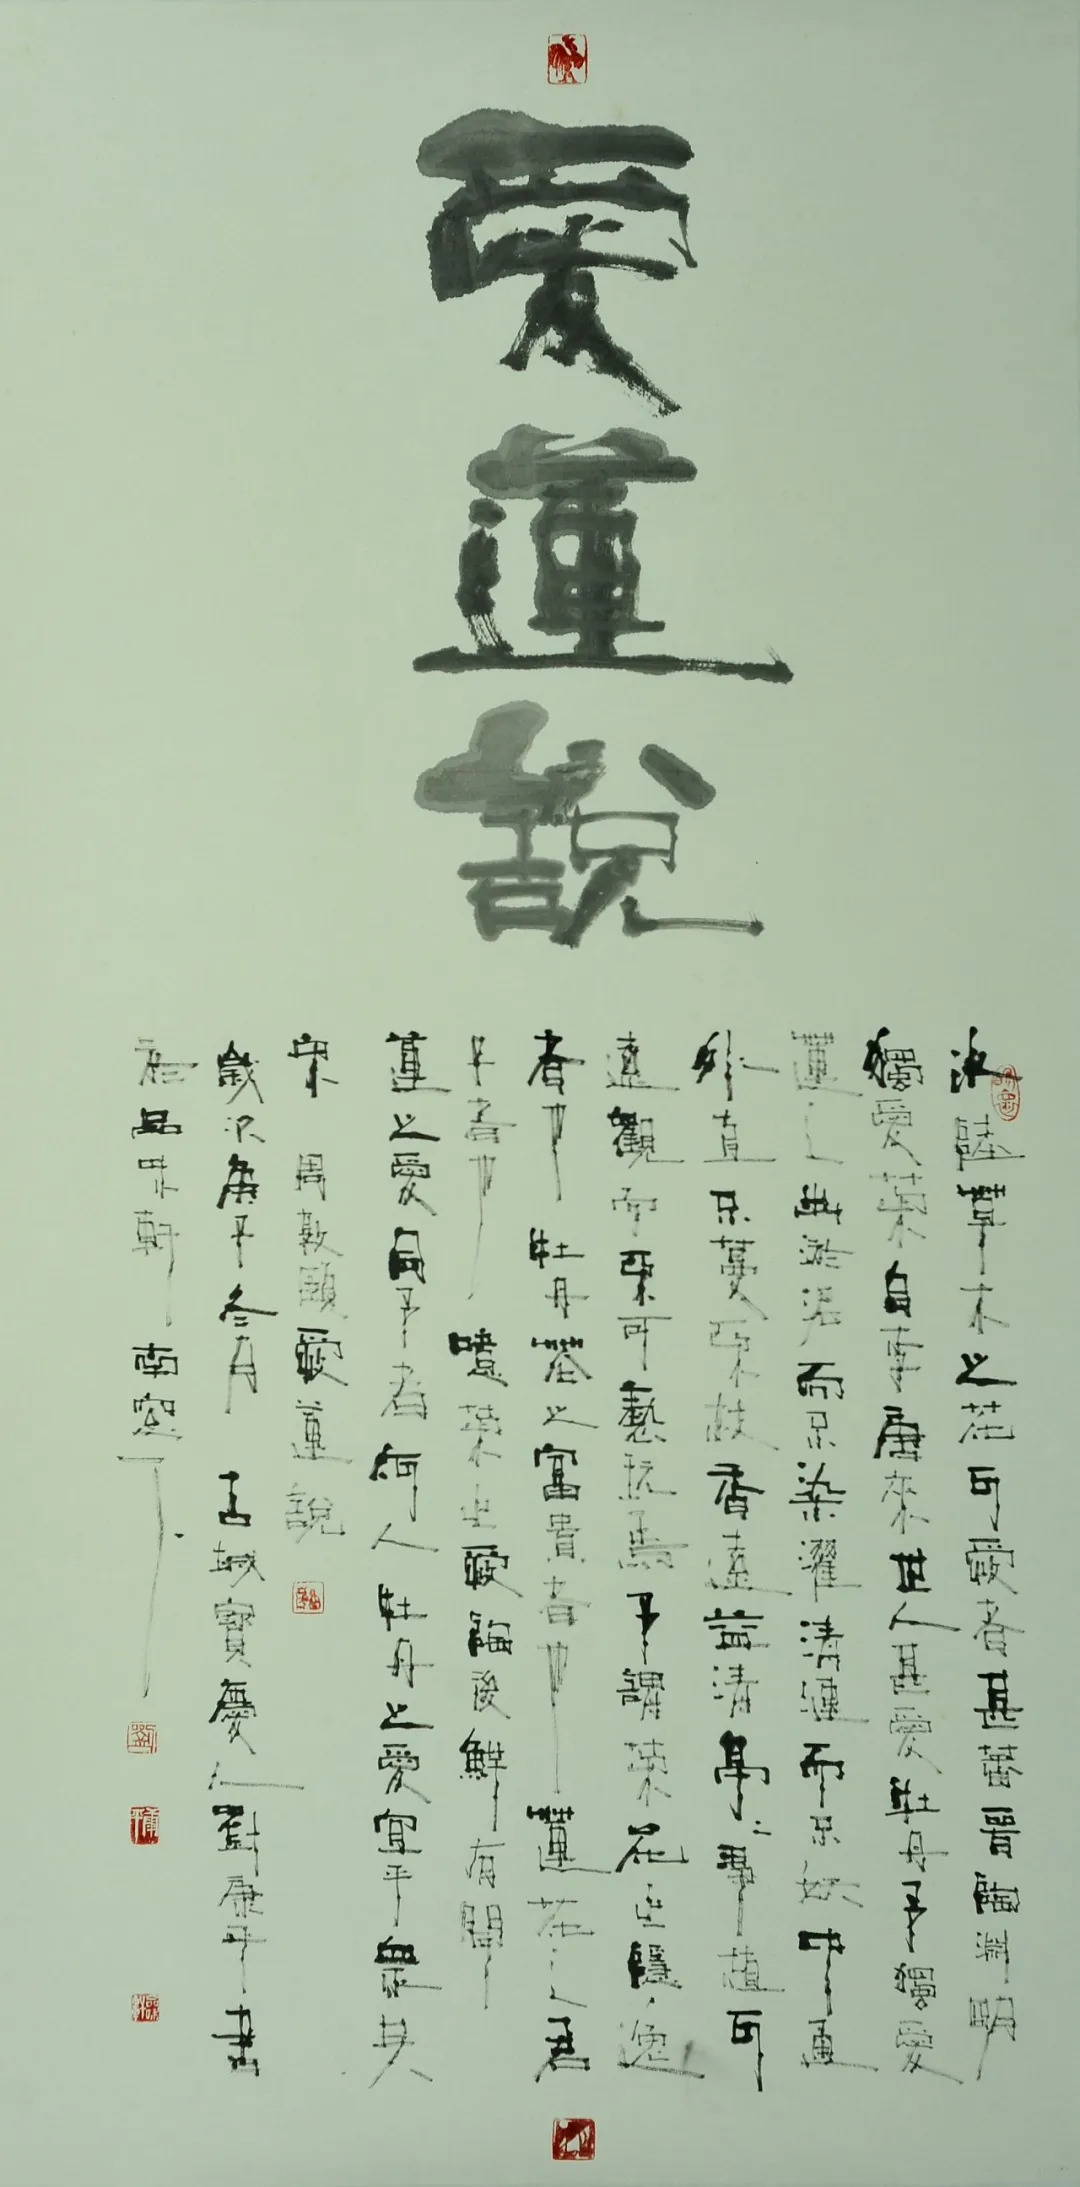 愛蓮說
水陸草木之花可愛者甚蕃晉陶淵明
獨愛菊自李唐來世人甚愛牡丹予獨愛
蓮之出淤泥而不染濯清漣而不妖中通
外直不蔓不枝香遠益清亭亭淨植可
遠觀而不可褻玩焉予謂菊花之隱逸
者也牡丹花之富貴者也蓮花之君
子者也噫菊之愛陶後鮮有聞
蓮之愛同予者何人牡丹之愛宜乎眾矣
宋周敦頤愛蓮說
歲次庚子冬月古城寶慶人劉康平書
於品味軒南窗下